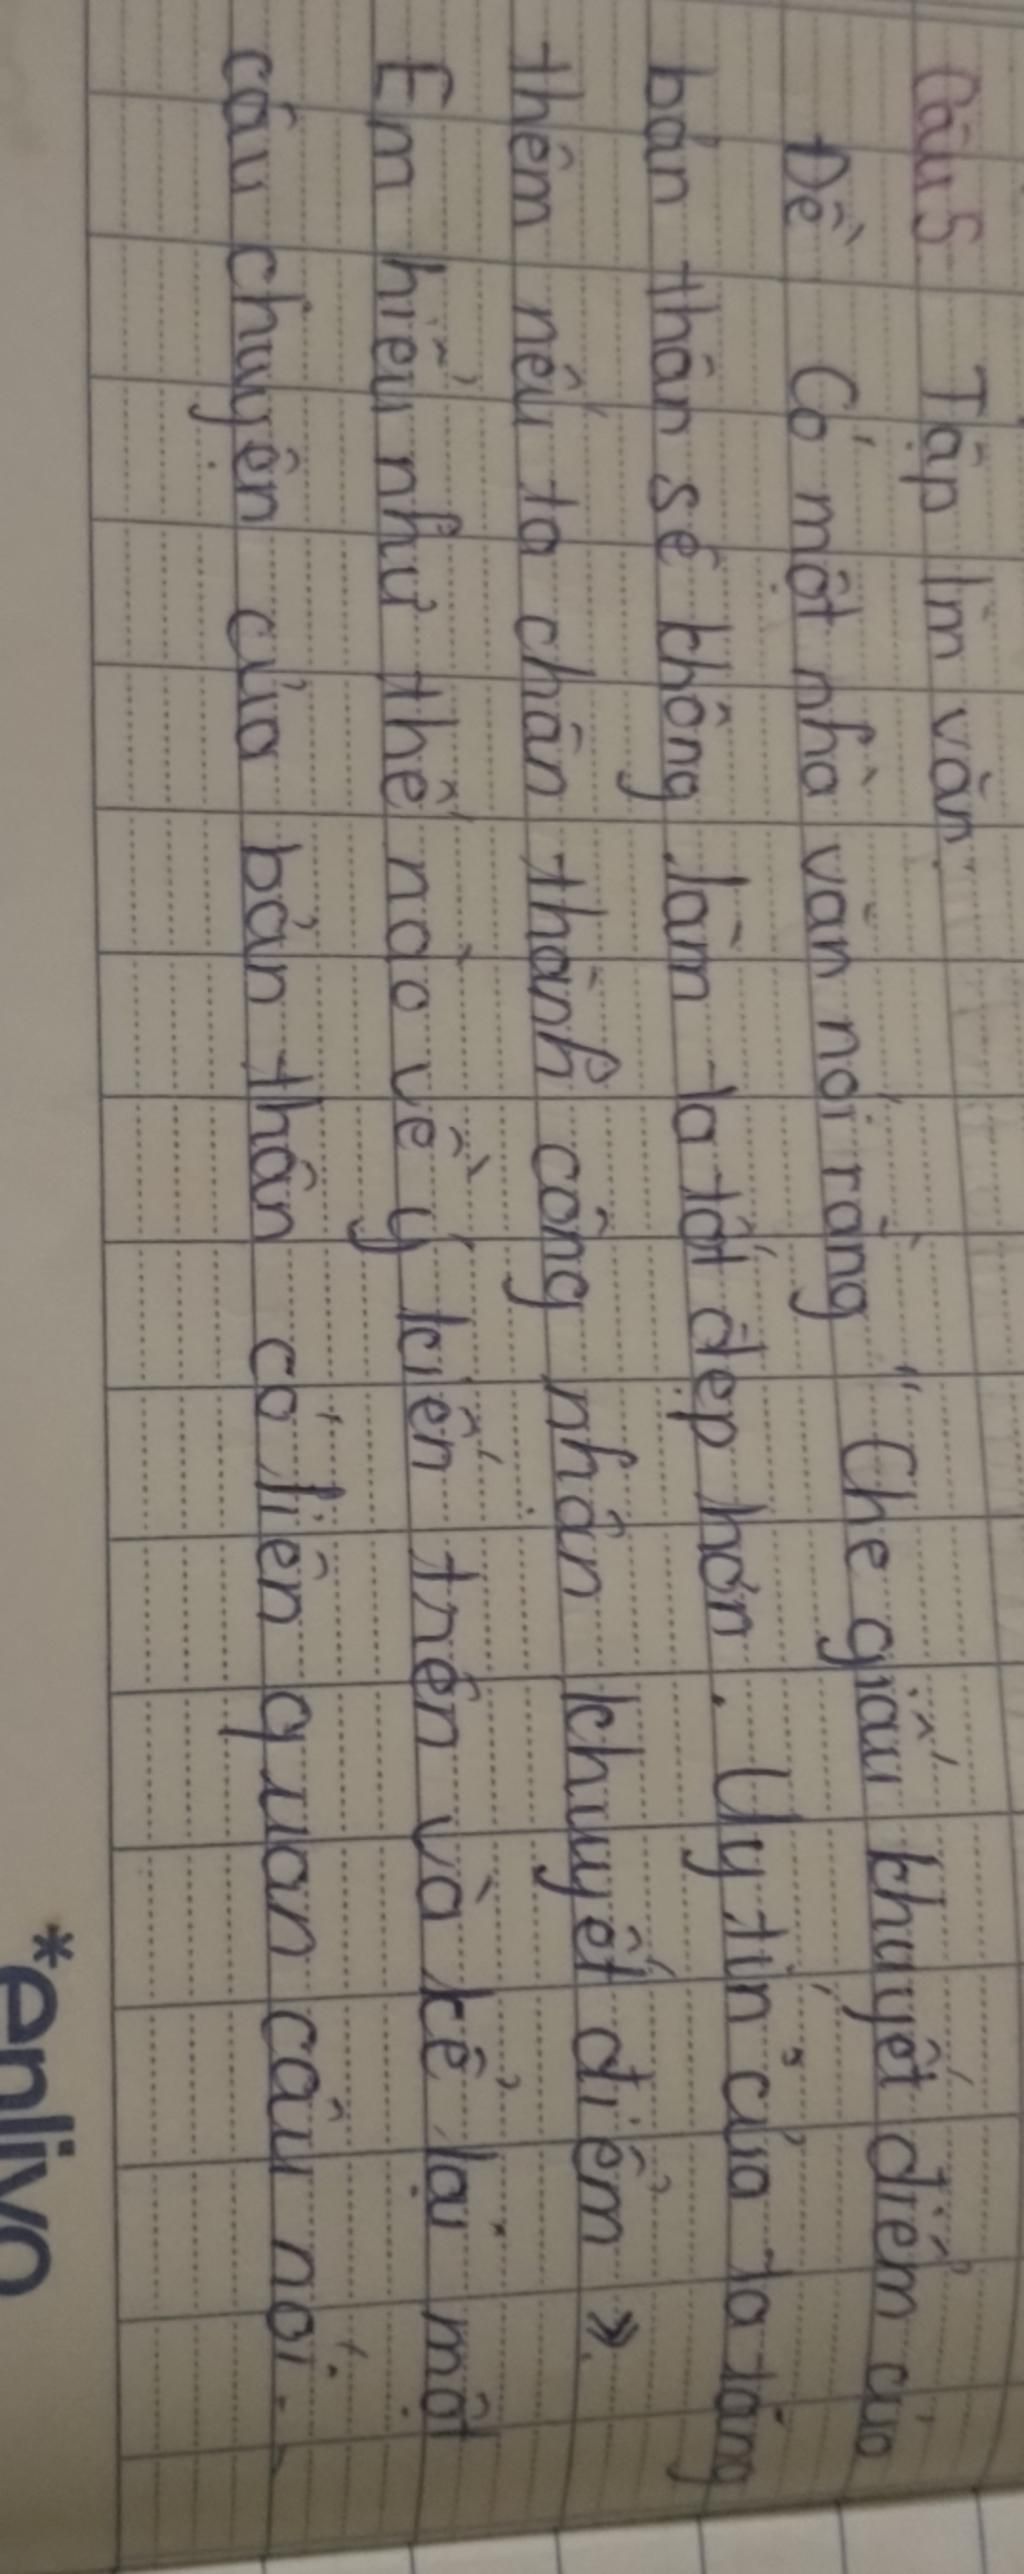 Câu 5 Tập làm văn
Đề Có một nhà văn nói rằng " Che giấu khuyết điểm của
bản thân sẽ không làm ta tốt đẹp hơn. Uy tín của ta tăng
thêm nếu ta chân thành công nhận khuyết điểm ».
Em hiểu như thế nào về ý kiến trên và kể lại một
câu chuyện của bản thân có liên quan câu nói.
*enlivo